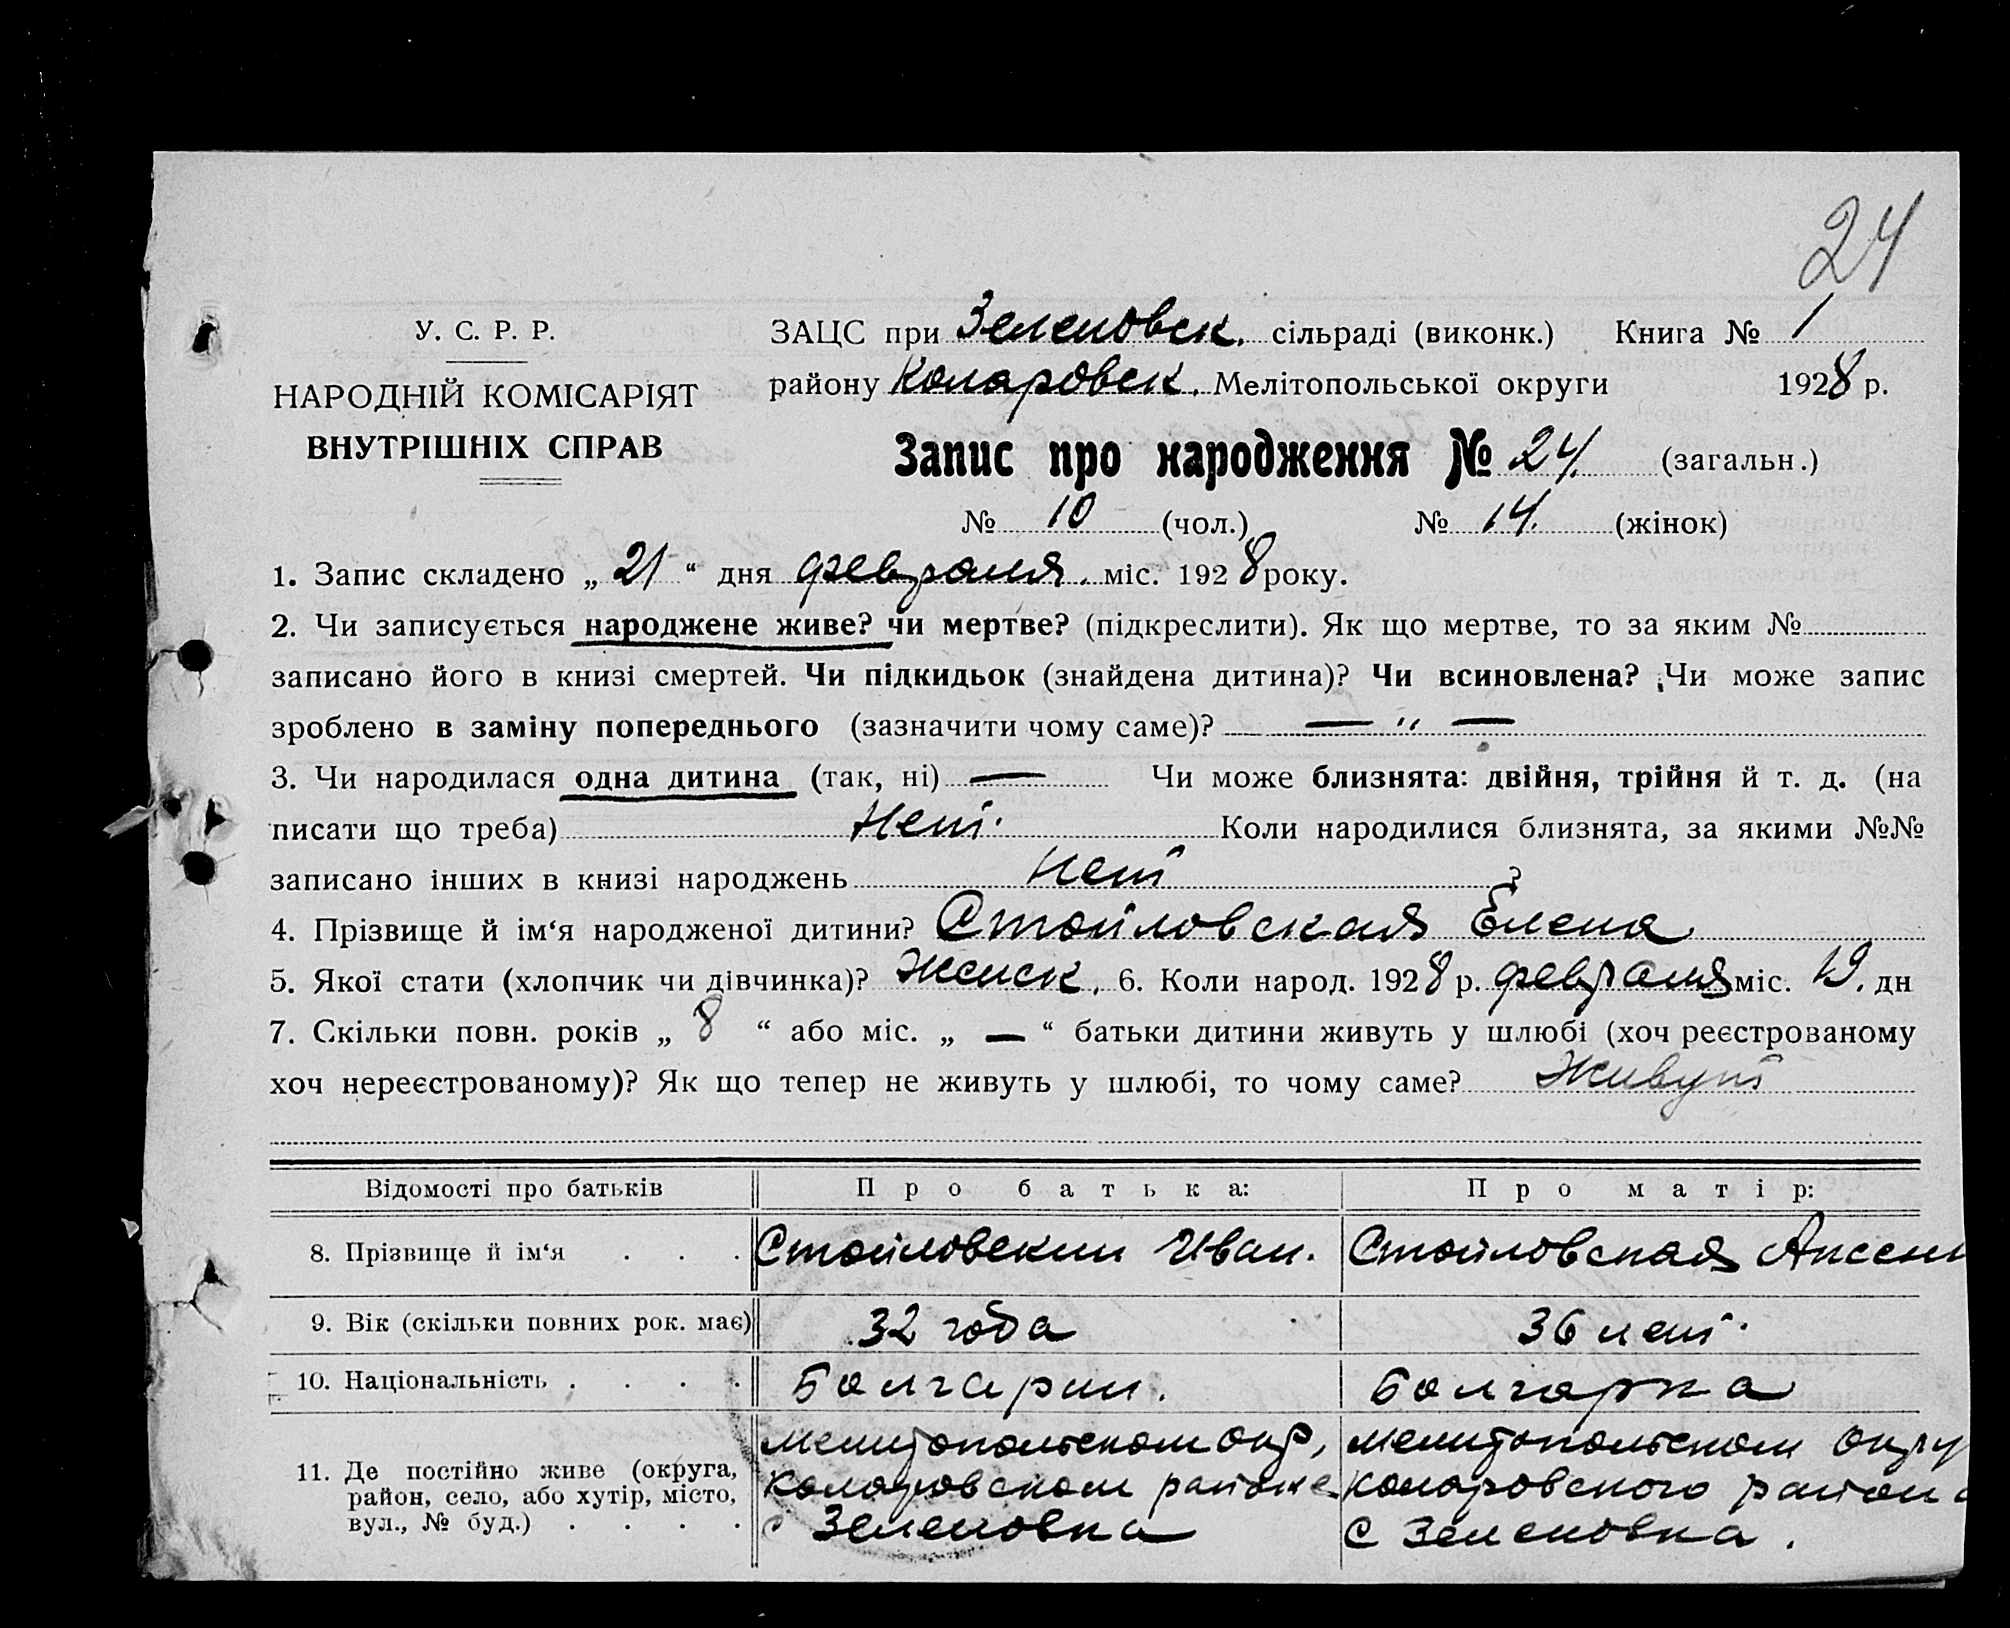 24
У. С. Р. Р.
НАРОДНІЙ КОМІСАРІЯТ
ВНУТРІШНІХ СПРАВ
ЗАЦС при Зеленовск. сільраді (виконк.) Книга № 1
району Коларовск. Мелітопольської округи 1928 р.
Запис про народження № 24. (загальн.)
№ 10 (чол.) № 14. (жінок)
1. Запис складено „ 21 “ дня февраля. міс. 1928 року.
2. Чи записується народжене живе? чи мертве? (підкреслити). Як що мертве, то за яким №
записано його в книзі смертей. Чи підкидьок (знайдена дитина)? Чи всиновлена? Чи може запис
зроблено в заміну попереднього (зазначити чому саме)? — " —
3. Чи народилася одна дитина (так, ні) — Чи може близнята: двійня, трійня й т. д. (на
писати що треба) Нет. Коли народилися близнята, за якими №№
записано інших в книзі народжень нет ?
4. Прізвище й ім‘я народженої дитини? Стойловская Елена
5. Якої стати (хлопчик чи дівчинка)? Женск. 6. Коли народ. 1928 р. февраля міс. 19. дн
7. Скільки повн. років „ 8 “ або міс. „ — “ батьки дитини живуть у шлюбі (хоч реєстрованому
хоч нереєстрованому)? Як що тепер не живуть у шлюбі, то чому саме? Живут
Відомості про батьків Про батька: Про матір:
8. Прізвище й ім‘я . . . Стойловский Иван. Стойловская Аксени
9. Вік (скільки повних рок. має) 32 года 36 лет.
10. Національність . . . . Болгарин. Болгарка
11. Де постійно живе (округа, Мелитопольском окр, Мелитопольском окру
район, село, або хутір, місто, Коларовском районе Коларовского района
вул., № буд.) . . . . с Зеленовка с Зеленовка.